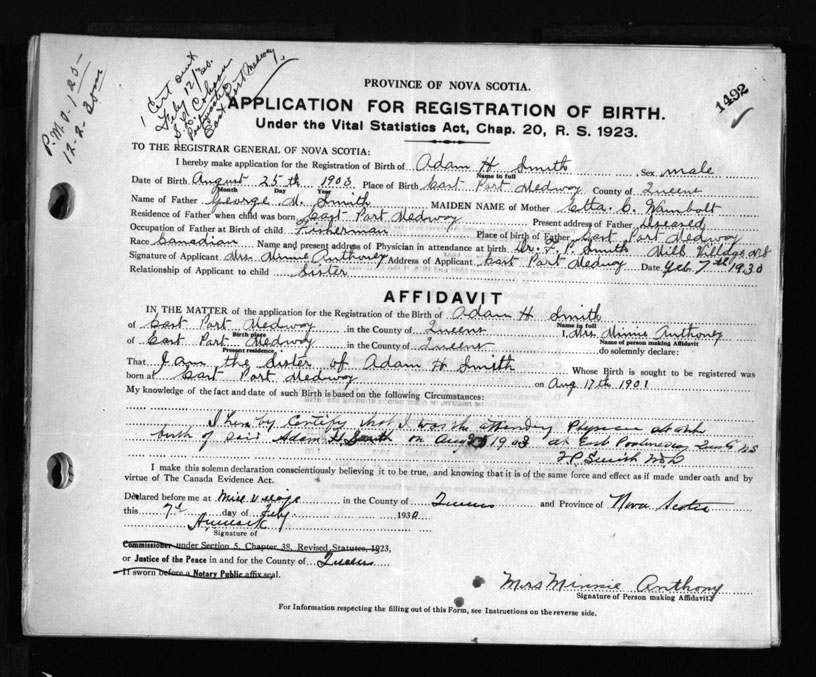 P.M.O-1.25-
12-2-30
1 Cert out
Feby 12/30.
East Port Medway.
1492
PROVINCE OF NOVA SCOTIA.
APPLICATION FOR REGISTRATION OF BIRTH.
Under the Vital Statistics Act, Chap. 20, R. S. 1923.
TO THE REGISTRAR GENERAL OF NOVA SCOTIA:
I hereby make application for the Registration of Birth of Adam H Smith Sex male
Name in full
Date of Birth August 25th 1903 Place of Birth East Port Medway County of Queens
Month Day Year
Name of Father George W. Smith MAIDEN NAME of Mother Etta. C. Wambolt
Residence of Father when child was born East Port Medway Present address of Father deseased
Occupation of Father at Birth of child Fisherman Place of birth of Father East Port Medway
Race Canadian Name and present address of Physician in attendance at birth Dr. F. P. Smith Mills Village NS
Signature of Applicant Mrs Minnie Anthoney Address of Applicant East Port Medway Date Feb. 7th 1930
Relationship of Applicant to child Sister
AFFIDAVIT
IN THE MATTER of the application for the Registration of the Birth of Adam H Smith
Name in full
of East Port Medway in the County of Queens I, Mrs. Minnie Anthoney
Birth place Name of person making Affidavit
of East Port Medway in the County of Queens do solemnly declare:
Present residence
That I am the Sister of Adam H Smith Whose Birth is sought to be registered was
born at East Port Medway on Aug 17th 1901
My knowledge of the fact and date of such Birth is based on the following Circumstances:
I hereby Certify that I was the attending Physician at the
birth of said Adam H Smith on Aug 25 1903 at East Portmedway Queens NS
F.P. Smith M.D
I make this solemn declaration conscientiously believing it to be true, and knowing that it is of the same force and effect as if made under oath and by
virtue of The Canada Evidence Act.
Declared before me at Mill Village in the County of Queens and Province of Nova Scotia
this 7th day of Feby 1930
Signature of
Commissioner under Section 5, Chapter 38, Revised Statutes, 1923,
or Justice of the Peace in and for the County of Queens
If sworn before a Notary Public affix seal.
Mrs Minnie Anthony
Signature of Person making Affidavit
For Information respecting the filling out of this Form, see Instructions on the reverse side.